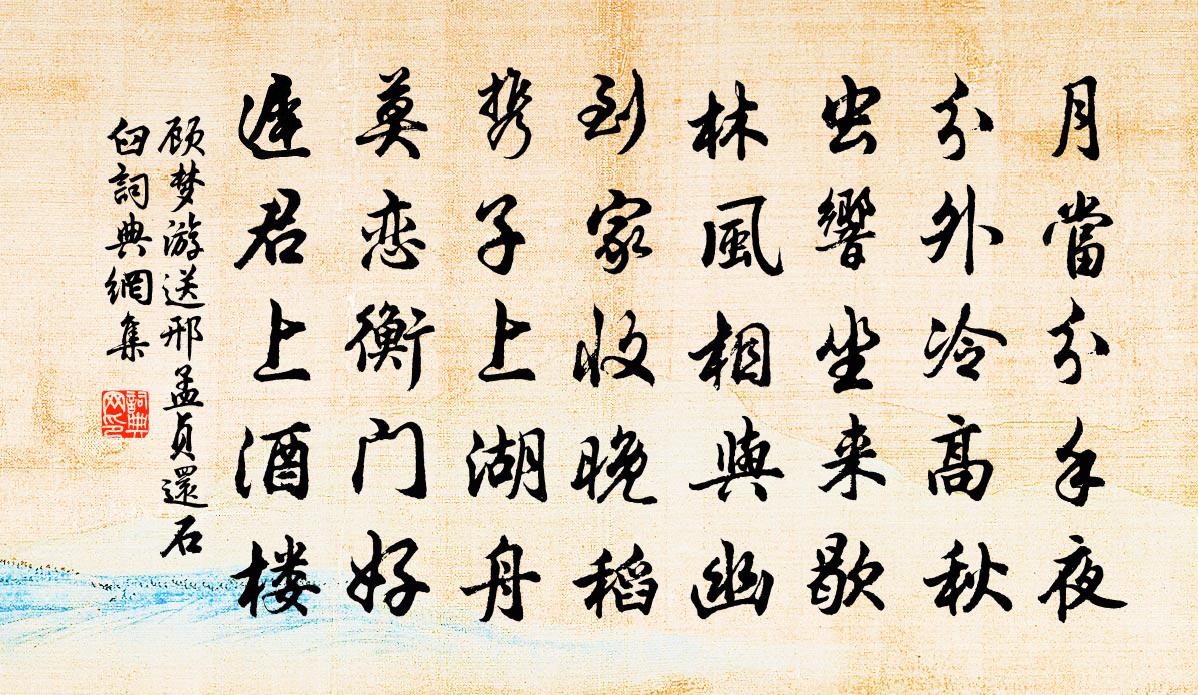 月當分手夜
分外冷高秋
虫響坐来歇
林風相與幽
到家收晚稻
携子上湖舟
莫恋衡门好
遲君上酒楼
顾梦游送邢孟贞還石
臼詞典網集
詞典
网印